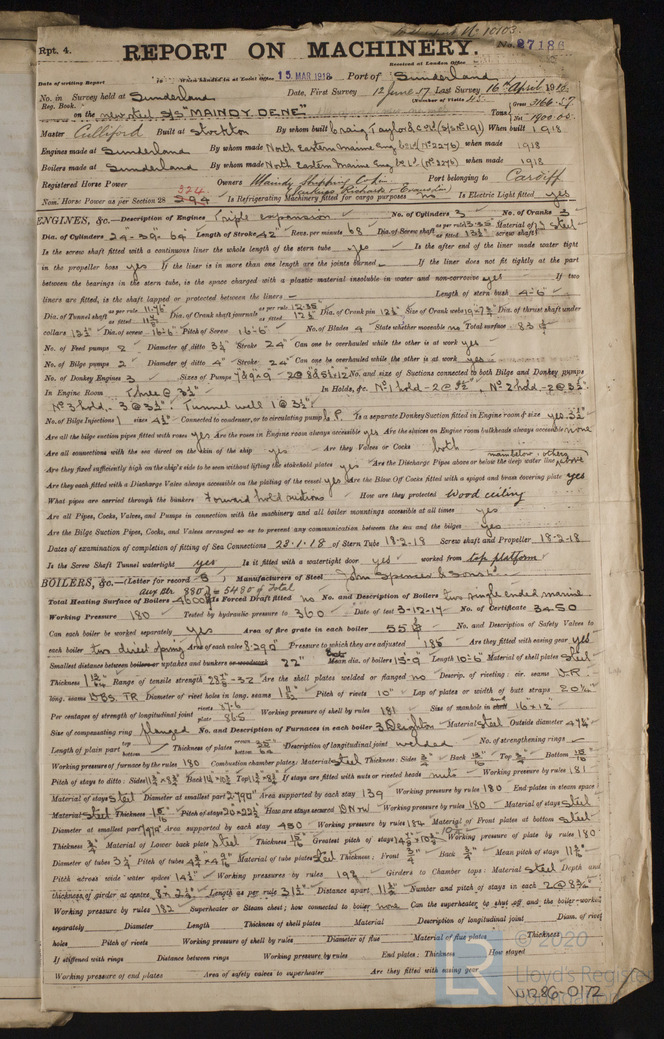 Rpt. 4.
REPORT ON MACHINERY.
No. 27186
Received at London Office
Date of writing Report When handed in at Local Office 15 MAR 1918 Port of Sunderland
No. in Survey held at Sunderland Date, First Survey 12 June 17 Last Survey 16th April 1918
Reg. Book. (Number of Visits 45)
on the new steel S/S "MAINDY DENE" Tons Gross 3166.57 Net 1900.00
Master Culliford Built at Stockton By whom built Craig Taylor & Co Ld (S/S No 191) When built 1918
Engines made at Sunderland By whom made North Eastern Marine Eng Co Ld (No 2275) when made 1918
Boilers made at Sunderland By whom made North Eastern Marine Eng Co Ld (No 2275) when made 1918
Registered Horse Power Owners Maindy Shipping Co Ln Port belonging to Cardiff
(Jenkins Richards & Evans Ln)
324
Nom. Horse Power as per Section 28 294 Is Refrigerating Machinery fitted for cargo purposes no Is Electric Light fitted yes
ENGINES, &c.—Description of Engines Triple expansion No. of Cylinders 3 No. of Cranks 3
Dia. of Cylinders 24"-39"-64" Length of Stroke 42" Revs. per minute 68 Dia. of Screw shaft as per rule 13.35 as fitted 13½" Material of screw shaft Steel
Is the screw shaft fitted with a continuous liner the whole length of the stern tube yes Is the after end of the liner made water tight
in the propeller boss yes If the liner is in more than one length are the joints burned — If the liner does not fit tightly at the part
between the bearings in the stern tube, is the space charged with a plastic material insoluble in water and non-corrosive yes If two
liners are fitted, is the shaft lapped or protected between the liners — Length of stern bush 4'-6"
Dia. of Tunnel shaft as per rule 11.76 as fitted Dia. of Crank shaft journals as per rule 12.35 as fitted 12½" Dia. of Crank pin 12½" Size of Crank webs 19"-7¾" Dia. of thrust shaft under
collars 12½" Dia. of screw 16'-6" Pitch of Screw 16'-6" No. of Blades 4 State whether moveable no Total surface 83 ft
No. of Feed pumps 2 Diameter of ditto 3¼" Stroke 24" Can one be overhauled while the other is at work yes
No. of Bilge pumps 2 Diameter of ditto 4" Stroke 24" Can one be overhauled while the other is at work yes
No. of Donkey Engines 3 Sizes of Pumps No. and size of Suctions connected to both Bilge and Donkey pumps
In Engine Room Three @ 3½" In Holds, &c. No 1 hold - 2 @ 3½", No 2 hold - 2 @ 3½"
No 3 hold - 3 @ 3½". Tunnel well 1 @ 3½"
No. of Bilge Injections 1 sizes 4½" Connected to condenser, or to circulating pump C.P. Is a separate Donkey Suction fitted in Engine room & size yes 3½"
Are all the bilge suction pipes fitted with roses yes Are the roses in Engine room always accessible yes Are the sluices on Engine room bulkheads always accessible none
Are all connections with the sea direct on the skin of the ship yes Are they Valves or Cocks both
Are they fixed sufficiently high on the ship's side to be seen without lifting the stokehold plates yes Are the Discharge Pipes above or below the deep water line main below - others above
Are they each fitted with a Discharge Valve always accessible on the plating of the vessel yes Are the Blow Off Cocks fitted with a spigot and brass covering plate yes
What pipes are carried through the bunkers Forward hold suctions How are they protected Wood ceiling
Are all Pipes, Cocks, Valves, and Pumps in connection with the machinery and all boiler mountings accessible at all times yes
Are the Bilge Suction Pipes, Cocks, and Valves arranged so as to prevent any communication between the sea and the bilges yes
Dates of examination of completion of fitting of Sea Connections 23.1.18 of Stern Tube 18-2-18 Screw shaft and Propeller 18-2-18
Is the Screw Shaft Tunnel watertight yes Is it fitted with a watertight door yes worked from top platform
BOILERS, &c.—(Letter for record S) Manufacturers of Steel John Spencer & Sons Ln
Aux Blr 880 = 5480 ft Total
Total Heating Surface of Boilers 4600 ft Is Forced Draft fitted no No. and Description of Boilers Two single ended marine
Working Pressure 180 Tested by hydraulic pressure to 360 Date of test 3-12-17 No. of Certificate 3450
Can each boiler be worked separately yes Area of fire grate in each boiler 55 ft No. and Description of Safety Valves to
each boiler two direct spring Area of each valve 8.290" Pressure to which they are adjusted 185 Are they fitted with easing gear yes
Smallest distance between boilers or uptakes and bunkers or woodwork 22" Mean dia. of boilers 15-9 Length 10-6 Material of shell plates Steel
Thickness Range of tensile strength 28½-32 Are the shell plates welded or flanged no Descrip. of riveting: cir. seams D.R.
long. seams D.B.S. T.R. Diameter of rivet holes in long. seams Pitch of rivets 10" Lap of plates or width of butt straps
Per centages of strength of longitudinal joint rivets 87.6 plate 86.5 Working pressure of shell by rules 181 Size of manhole in shell end 16"×12"
Size of compensating ring flanged No. and Description of Furnaces in each boiler 3 Deighton Material Steel Outside diameter 47¼"
Length of plain part top bottom Thickness of plates crown bottom Description of longitudinal joint welded No. of strengthening rings —
Working pressure of furnace by the rules 180 Combustion chamber plates: Material Steel Thickness: Sides Back Top Bottom
Pitch of stays to ditto: Sides Back Top If stays are fitted with nuts or riveted heads nuts Working pressure by rules 181
Material of stays Steel Diameter at smallest part Area supported by each stay 139 Working pressure by rules 180 End plates in steam space
Material Steel Thickness Pitch of stays How are stays secured D Nuts Working pressure by rules 180 Material of stays Steel
Diameter at smallest part Area supported by each stay 450 Working pressure by rules 184 Material of Front plates at bottom Steel
Thickness Material of Lower back plate Steel Thickness Greatest pitch of stays Working pressure of plate by rules 180
Diameter of tubes 3¼ Pitch of tubes Material of tube plates Steel Thickness: Front Back Mean pitch of stays 11½"
Pitch across wide water spaces 14½" Working pressures by rules Girders to Chamber tops: Material Steel Depth and
thickness of girder at centre Length as per rule Distance apart Number and pitch of stays in each
Working pressure by rules 182 Superheater or Steam chest; how connected to boiler none Can the superheater be shut off and the boiler worked
separately Diameter Length Thickness of shell plates Material Description of longitudinal joint Diam. of rivet
holes Pitch of rivets Working pressure of shell by rules Diameter of flue Material of flue plates Thickness
If stiffened with rings Distance between rings Working pressure by rules End plates: Thickness How stayed
Working pressure of end plates Area of safety valves to superheater Are they fitted with easing gear
© 2020
Lloyd's Register
W1286-0172